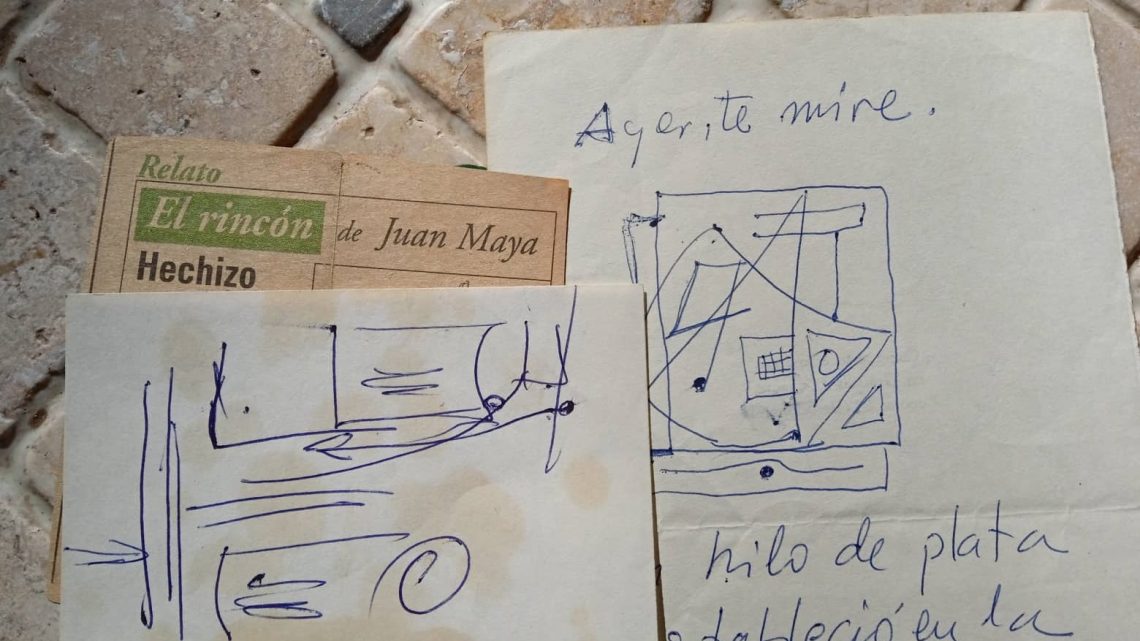 Relato
El rincón de Juan Maya
Hechizo
Ayer, te mire.
hilo de plata
estableció en la